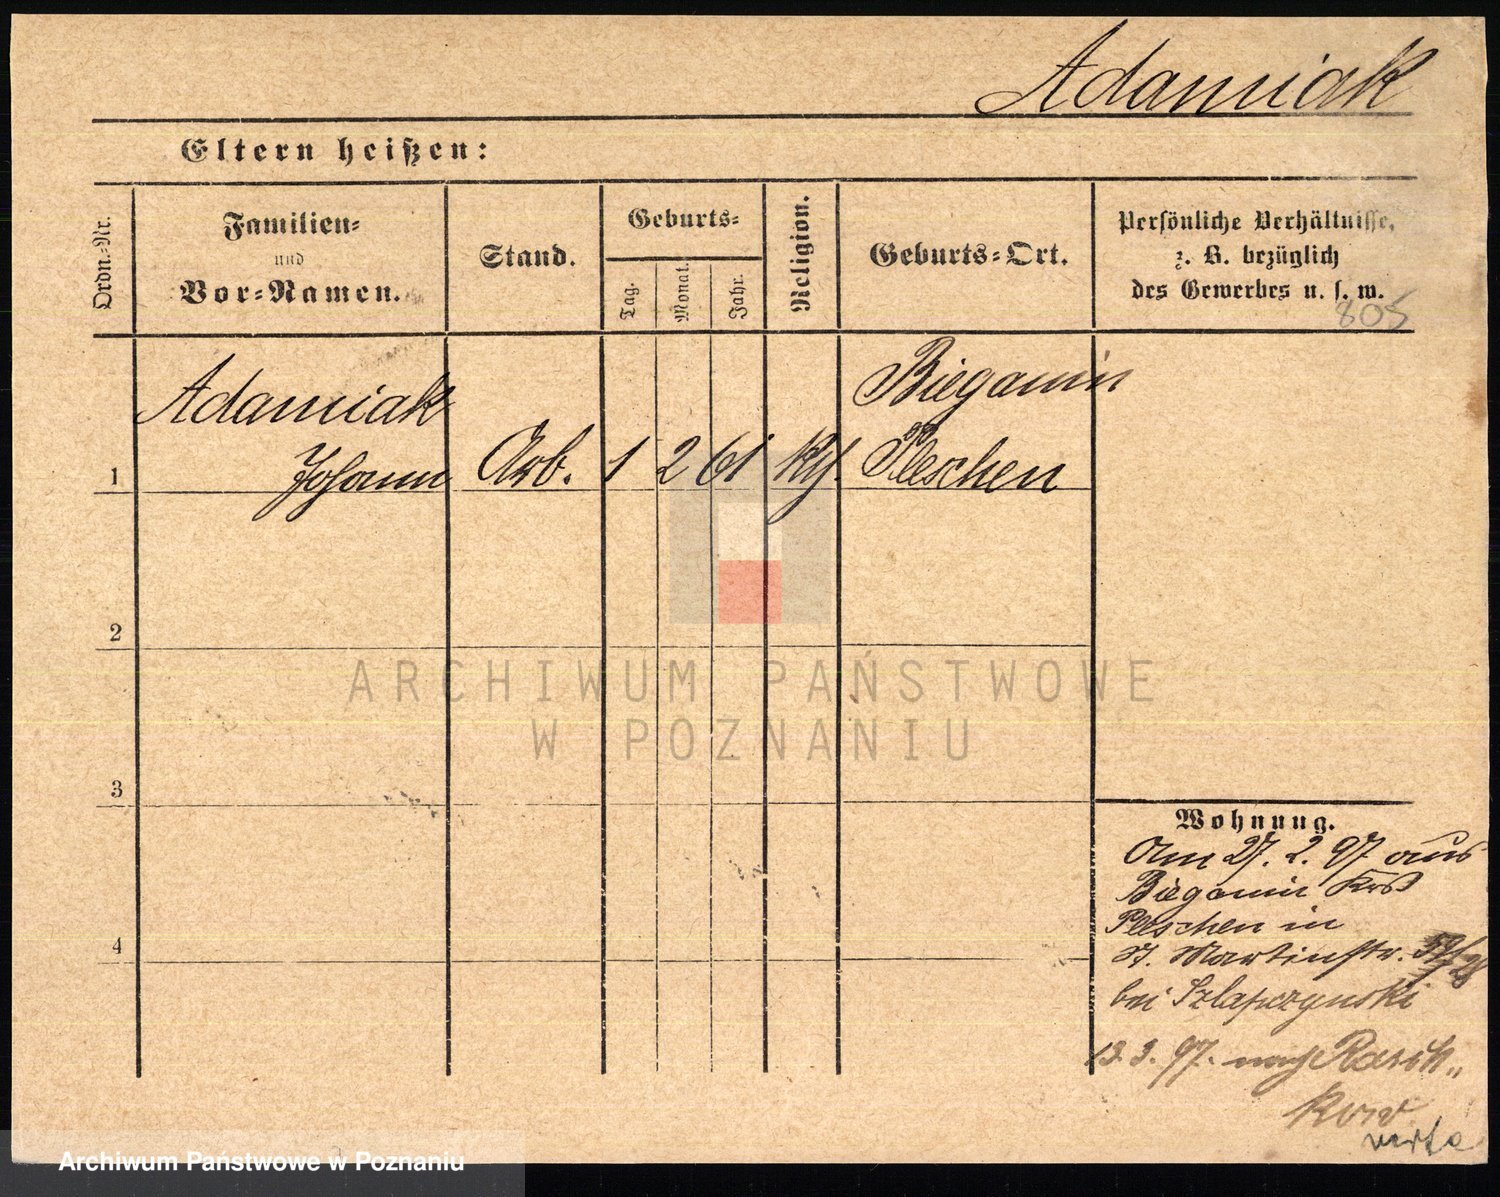 Adamiak
Eltern heißen:
Ordn.-Nr.
Familien-
und
Vor-Namen.
Stand.
Geburts-
Tag.
Monat.
Jahr.
Religion.
Geburts-Ort.
Persönliche Verhältnisse,
z. B. bezüglich
des Gewerbes u. s. w.
805
1
Adamiak
Johann
Arb.
1
2
61
kth.
Bieganin
Pleschen
2
3
4
Wohnung.
Am 27. 2. 97 aus
Bieganin Krs
Pleschen in
St. Martinstr.
bei Szlapczynski
13. 3. 97. nach Rasch„
kow
verte
ARCHIWUM PAŃSTWOWE
W POZNANIU
Archiwum Państwowe w Poznaniu